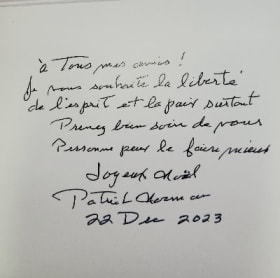 à Tous mes amis !
Je vous souhaite la liberté
de l'esprit et la paix surtout
Prenez bien soin de vous
Personne peux le faire mieux
Joyeux Noël
Patrick Norman
22 Dec 2023